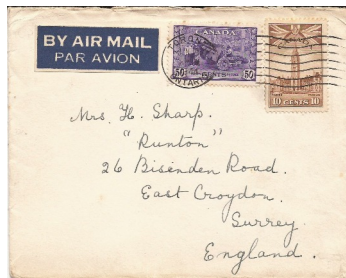 BY AIR MAIL
PAR AVION
CANADA
50 CENTS 50
ONTARIO
10 CENTS 10
Mrs. H. Sharp.
"Runton"
26 Bisenden Road.
East Croydon.
Surrey.
England.